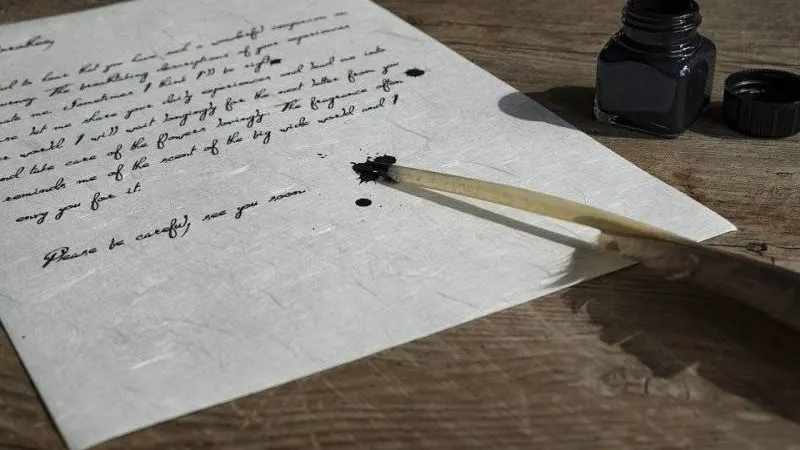 to hear that you have had a wonderful
The breathtaking descriptions of your experiences
me. Sometimes I think I'll be right
let me share your daily experiences and lead me into
world! I will wait longingly for the next letter from you
and take care of the flowers lovingly. The fragrance often
reminds me of the scent of the big wide world and I
envy you for it.
Please be careful, see you soon